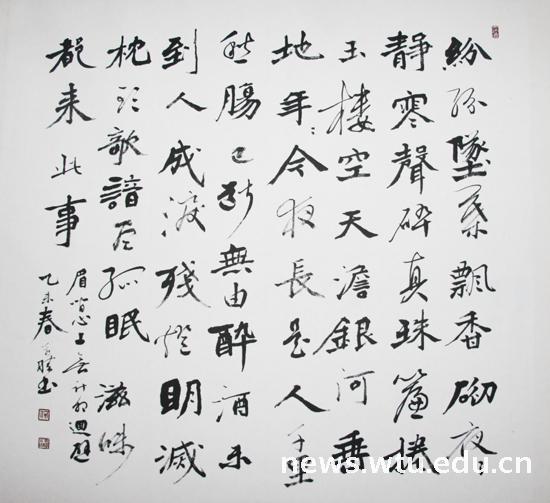 紛紛墜葉飄香砌夜
靜寒聲碎真珠簾捲
玉樓空天澹銀河垂
地年〻今夜長是人千里
愁腸已斷無由醉酒未
到人成淚殘燈明滅
枕頭歌諳尽孤眠滋味
都来此事
眉間心上無計相迴避
乙未春书
news.wtu.edu.cn